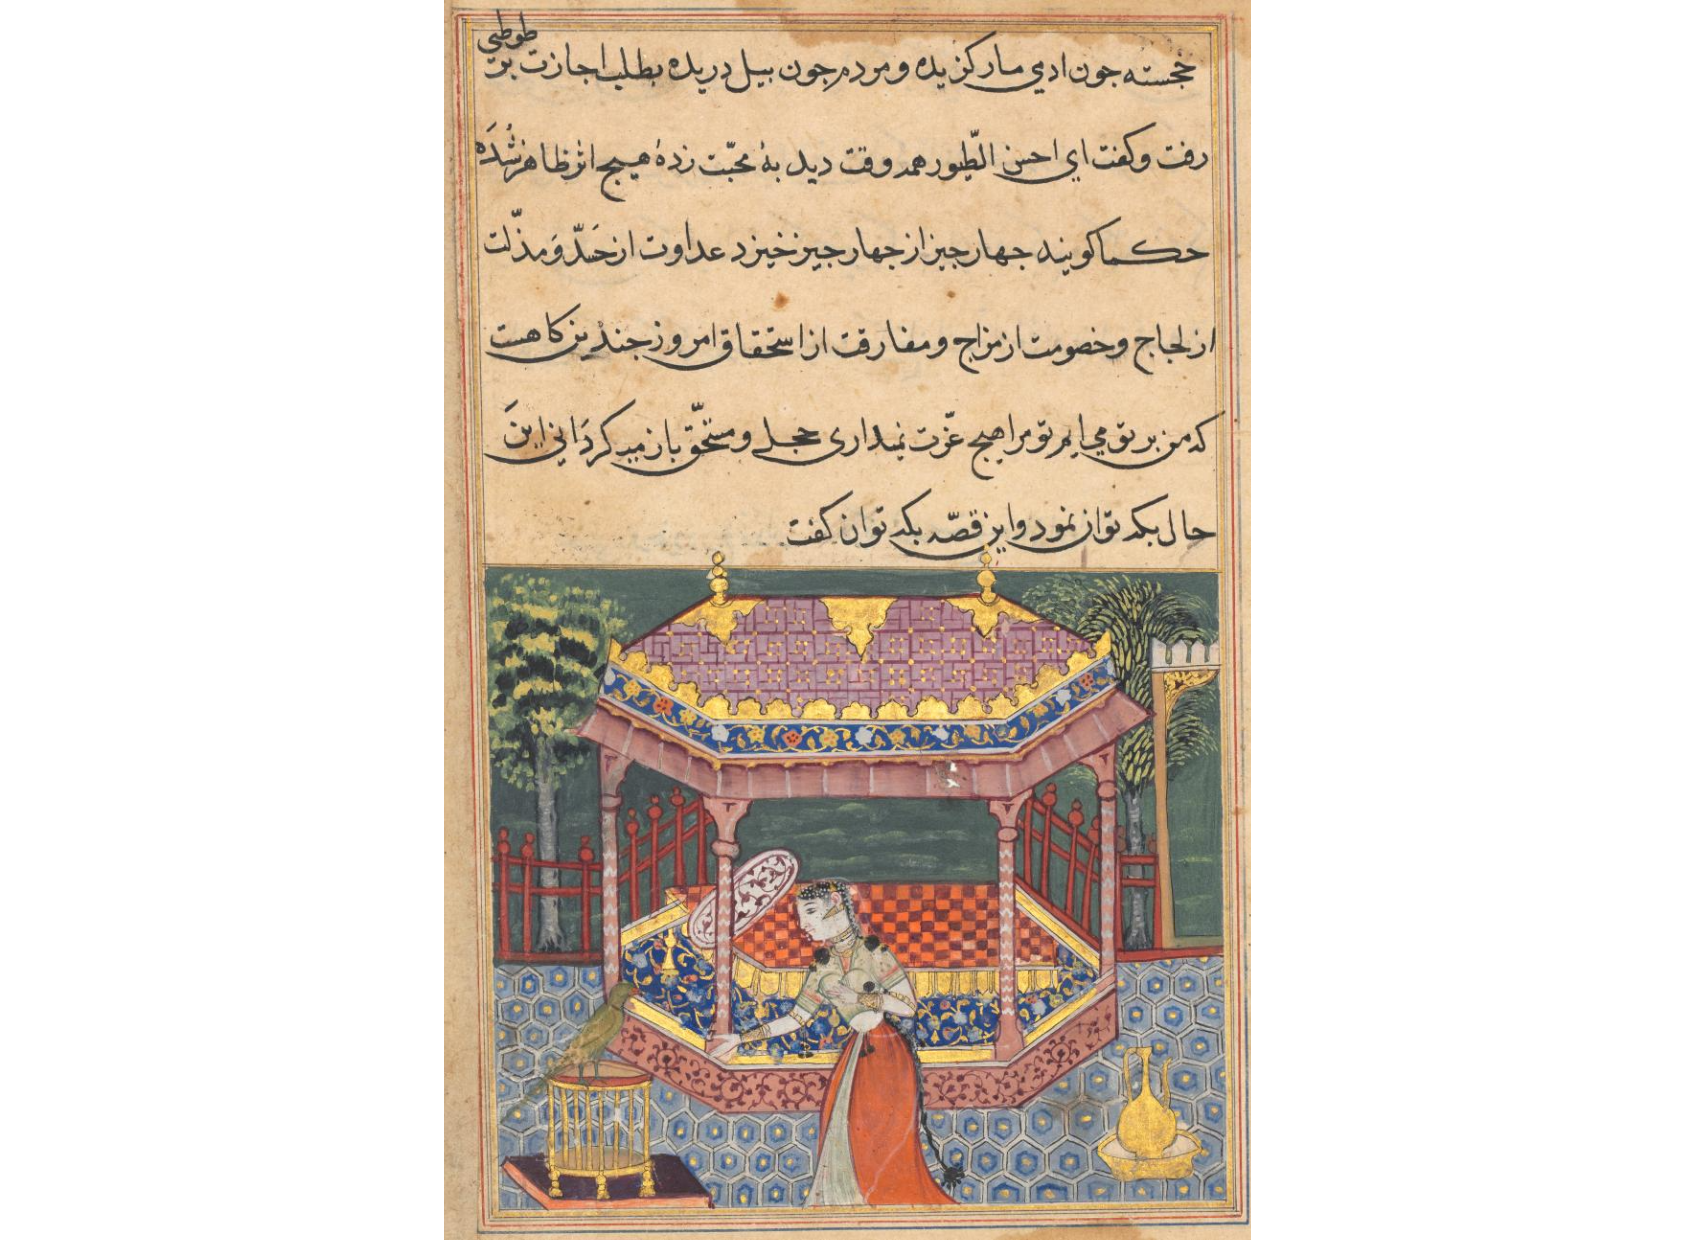 خجسته جون ادمي مار كزيده و مردم جون بيل دريده بطلب اجازت بر طوطي
رفت و كفت اي احسن الطّيور همه وقت ديد بهٔ محبّت زدهٔ هيج اثر ظاهر شُدَه
حكما كويند جهار جيز از جهار جيز خيزد عداوت از حَسَد وَ مذلّت
از لجاج و خصومت از مزاج و مفارقت از استحقاق امروز جندين كاهست
كه من بر تو مي ايم تو مرا هيج عزّت نميداري خجلے و مستحقّ باز ميكردَاني اينَ
حال بكه توان نمود و اين قصّه بكه توان كفت